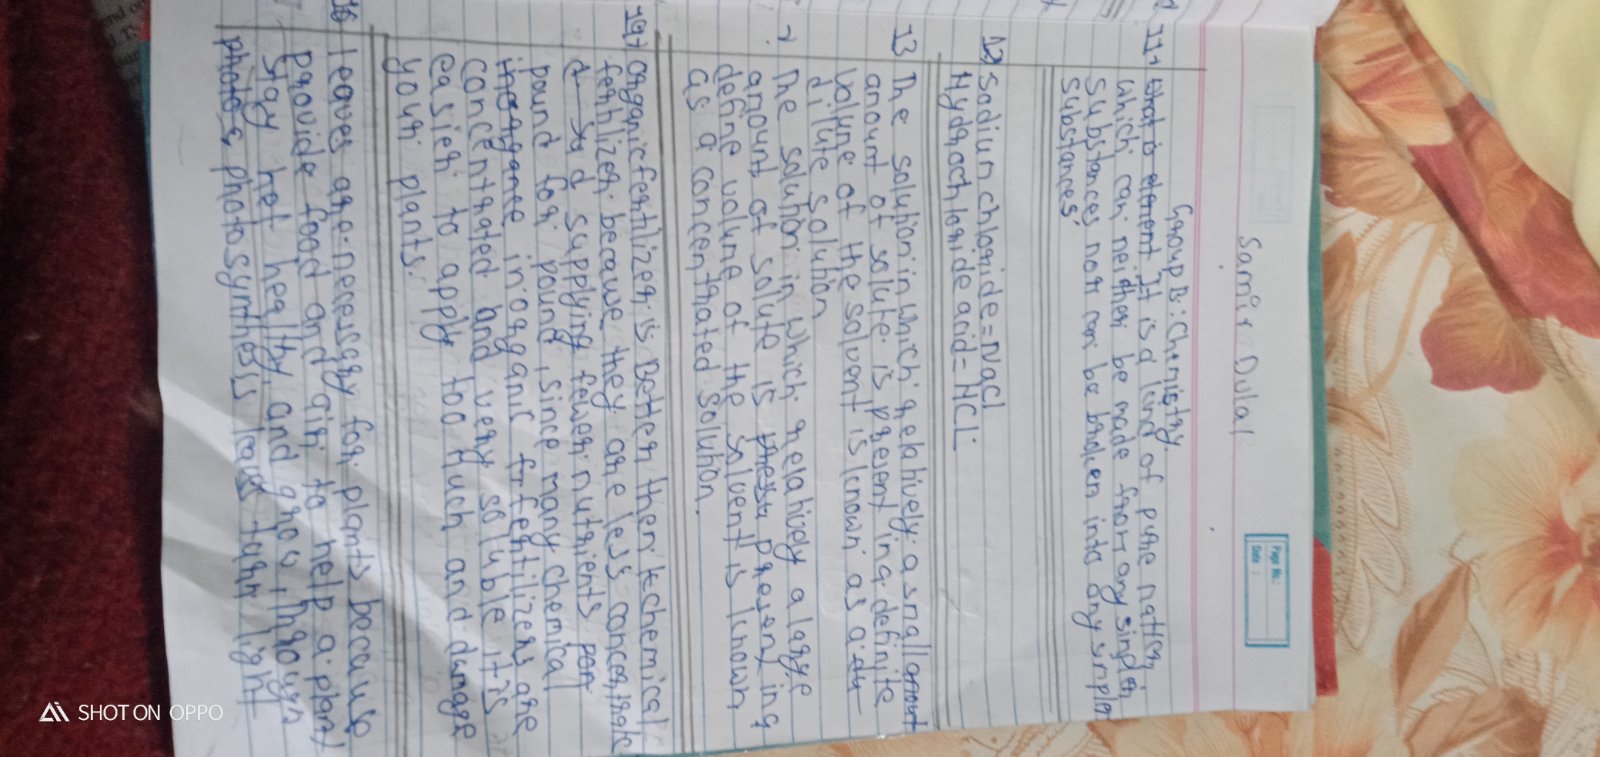 Samir Dulal
Page No.:
Date :
Group B: Chemistry.
11> What is element It is a kind of pure matter,
which can neither be made from any simpler
substances nor can be broken into any simpler
substances.
12) Sodium chloride = NaCl
Hydrochloride acid = HCL.
13 The solution in which relatively a small amount
amount of solute is present in a definite
volume of the solvent is known as a
dilute solution
The solution in which relatively a large
amount of solute is present in a
define volume of the solvent is known
as a concentrated solution.
14> organic fertilizer is Better then chemical
fertilizer because they are less concentrate
d supplying fewer nutrients
pound for pound, since many chemical
inorganic fertilizers are
concentrated and very soluble, it is
easier to apply too much and damage
your plants.
16 leaves are necessary for plants because
provide food and air to help a plant
stay healthy and grow, through
photosynthesis leaves turn light
SHOT ON OPPO